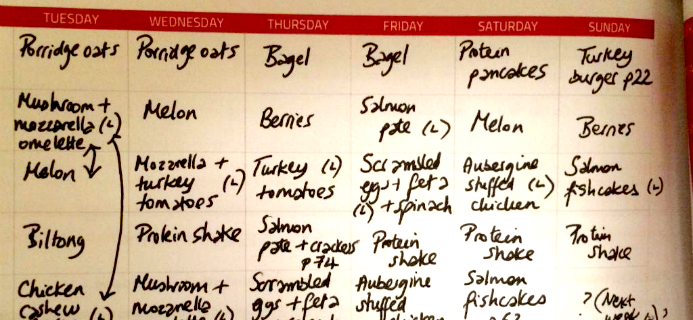 TUESDAY WEDNESDAY THURSDAY FRIDAY SATURDAY SUNDAY
Porridge oats
Porridge oats
Bagel
Bagel
Protein
pancakes
Turkey
burger p22
Mushroom +
mozzarella (L)
omelette
Melon
Berries
Salmon
pate (L)
Melon
Berries
Melon
Mozzarella +
turkey (L)
tomatoes
Turkey (L)
tomatoes
Scrambled
eggs + feta
(L) + spinach
Aubergine
stuffed (L)
chicken
Salmon
fishcakes (L)
Biltong
Protein shake
Salmon
pate + crackers
p74
Protein
shake
Protein
shake
Protein
shake
Chicken
cashew (L)
Mushroom +
mozzarella
Scrambled
eggs + feta
Aubergine
stuffed
Salmon
fishcakes
? (Next